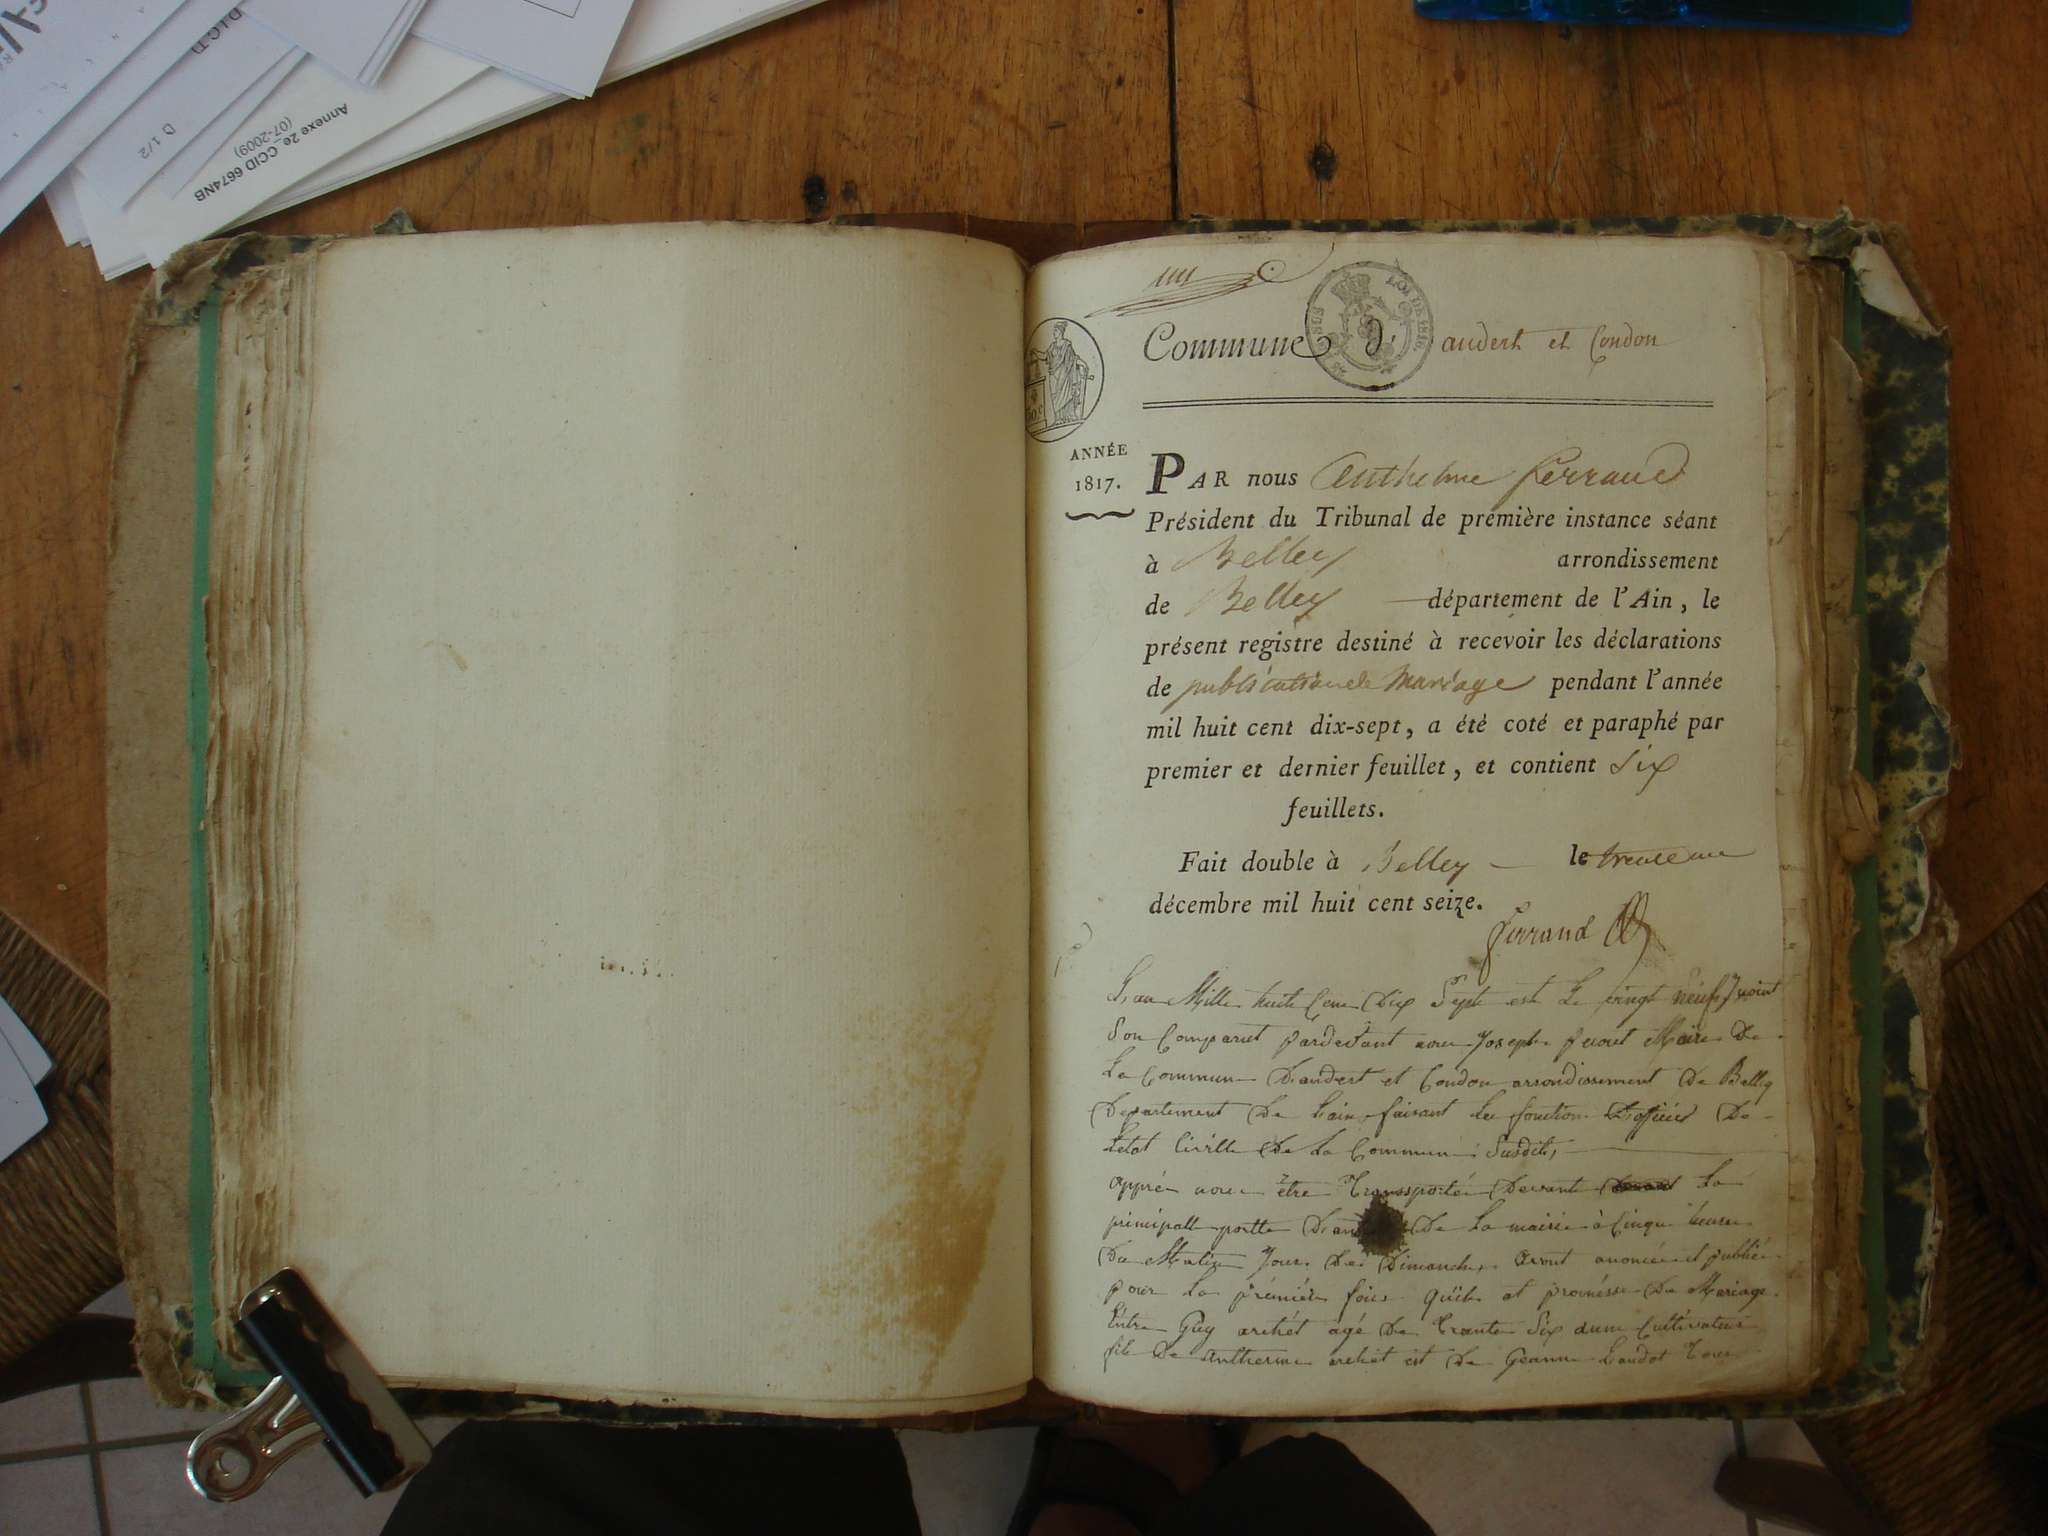 D 1/2
Annexe 2e_CCID 6674NB
(07-2009)
Commune d'andert et Condon
ANNÉE
1817.
PAR nous Anthelme ferrand
Président du Tribunal de première instance séant
à Belley arrondissement
de Belley département de l'Ain, le
présent registre destiné à recevoir les déclarations
de publication de Mariage pendant l'année
mil huit cent dix-sept, a été coté et paraphé par
premier et dernier feuillet, et contient six
feuillets.
Fait double à Belley le trente un
décembre mil huit cent seize.
ferrand
L'an Mille huit Cent Dix Sept est Le vingt neuf
Son Comparut pardevant nous Joseph Maire De
La Commun D'andert et Condon arrondissement De Belley
Departement De Lain faisant Les fonction D'officier De
Letat Civille De La Commun Susdite,
appré nous être Transporté Devant La
principalle portte De La mairie à Cinque heure
Du Matin Jour De Dimanche, anoncé et publié
pour La prémiér fois quil at promésse De Mariage
Entre Guy arthét agé De Trante Six anne Cultivateur
fils De antherme arthét est De Geanne